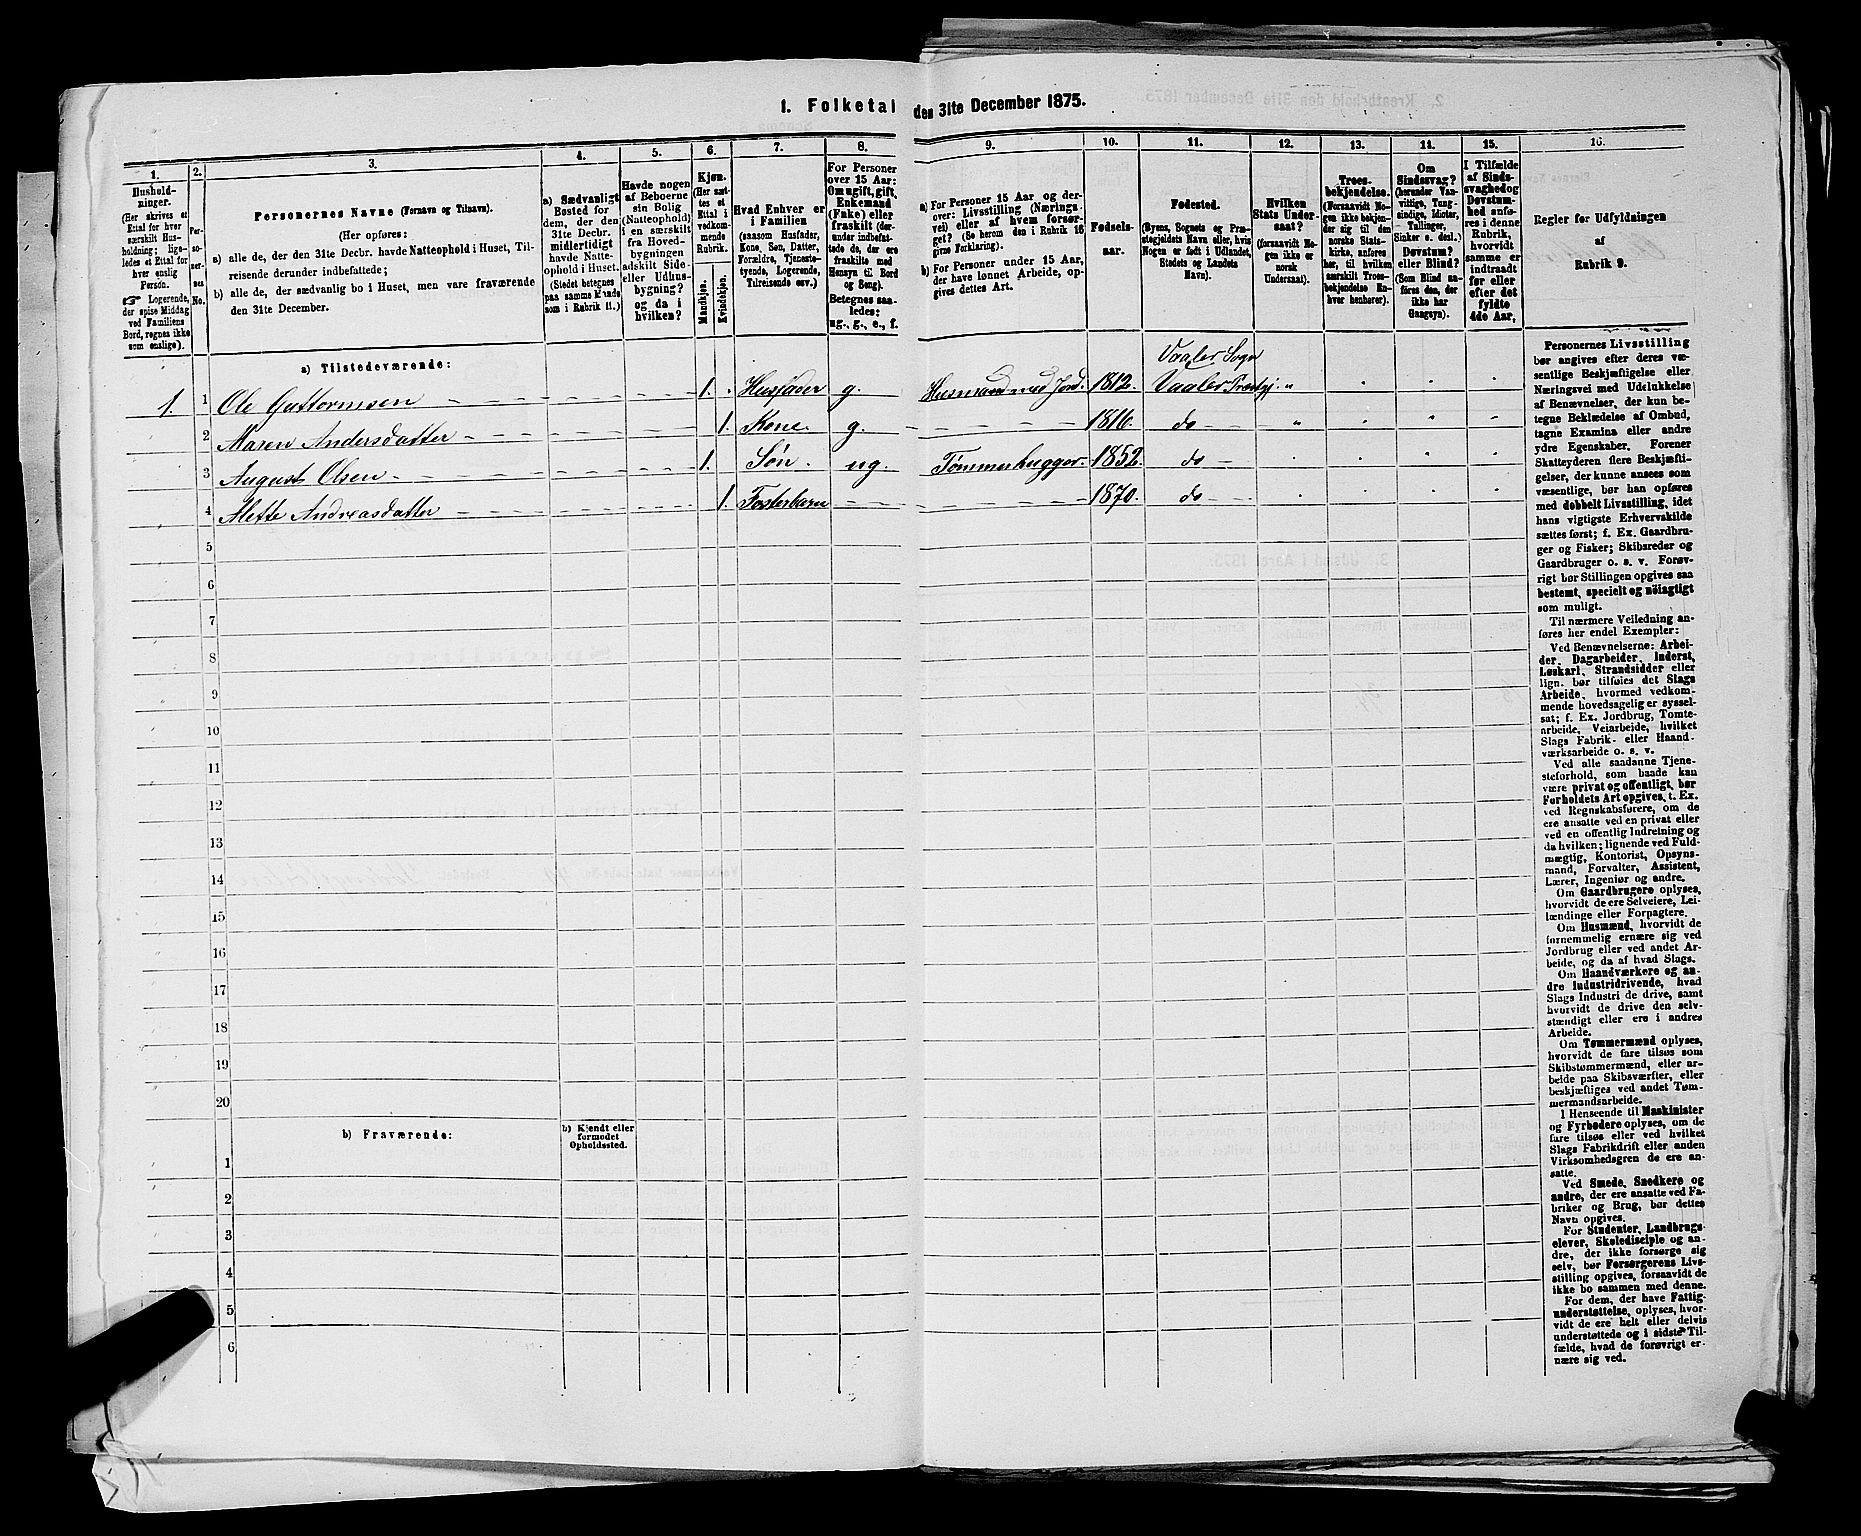 1. Folketal den 31te December 1875.
1.
Hushold-
ninger.
(Her skrives et
Ettal for hver
særskilt Hus-
holdning; lige-
ledes et Ettal for
hver enslig
Person.
☞ Logerende,
der spise Middag
ved Familiens
Bord, regnes ikke
som enslige).
2.
Per-
so-
ner-
nes
No.
3.
Personernes Navne (Fornavn og Tilnavn).
(Her opføres:
a) alle de, der den 31te Decbr. havde Natteophold i Huset, Til-
reisende derunder indbefattede;
b) alle de, der sædvanlig bo i Huset, men vare fraværende
den 31te December.
4.
a) Sædvanligt
Bosted for
dem, der den
31te Decbr.
midlertidigt
havde Natte-
ophold i Huset.
(Stedet betegnes
paa samme Maade
som i Rubrik 11.)
5.
Havde nogen
af Beboerne
sin Bolig
(Natteophold)
i en særskilt
fra Hoved-
bygningen
adskilt Side-
eller Udhus-
bygning?
og da i
hvilken?
6.
Kjøn.
(Her sæt-
tes et
Ettal i
vedkom-
mende
Rubrik.
Mandkjøn.
Kvindekjøn.
7.
Hvad Enhver er
i Familien
(saasom Husfader,
Kone, Søn, Datter,
Forældre, Tjeneste-
tyende, Logerende,
Tilreisende osv.)
8.
For Personer
over 15 Aar:
Om ugift, gift,
Enkemand
(Enke) eller
fraskilt (der-
under indbefat-
tede de, der ere
fraskilte med
Hensyn til Bord
og Seng).
Betegnes saa-
ledes:
ug., g., e., f.
9.
a) For Personer 15 Aar og der-
over: Livsstilling (Nærings-
vei) eller af hvem forsør-
get? (Se herom den i Rubrik 16
givne Forklaring).
b) For Personer under 15 Aar,
der have lønnet Arbeide, op-
gives dettes Art.
10.
Fødsels-
aar.
11.
Fødested.
(Byens, Sognets og Præ-
stegjeldets Navn eller, hvis
Nogen er født i Udlandet,
Stedets og Landets
Navn).
12.
Hvilken
Stats Under-
saat?
(forsaavidt No-
gen ikke er
norsk
Undersaat).
13.
Troes-
bekjendelse.
(Forsaavidt No-
gen ikke bekjen-
der sig til den
norske Stats-
kirke, anføres
her, til hvilken
særskilt Troes-
bekjendelse En-
hver henhører).
14.
Om
Sindssvag?
(herunder Van-
vittige, Tung-
sindige, Idioter,
Tullinger,
Sinker o. desl.)
Døvstum?
eller Blind?
(Som Blind an-
føres den, der
ikke har
Gangsyn).
15.
I Tilfælde
af Sinds-
svaghed og
Døvstum-
hed anfø-
res i denne
Rubrik,
hvorvidt
samme er
indtraadt
før eller
efter det
fyldte
4de Aar.
16.
Regler for Udfyldningen
af
Rubrik 9.
a) Tilstedeværende:
Vaaler Sogn
1. 1 Ole Guttormsen 1. Husfader g. Husmand med Jord. 1812. Vaaler Præstgj. "
2 Maren Andersdatter 1. Kone. g. 1816. do "
3 August Olsen 1. Søn. ug. Tømmerhugger. 1852. do
4 Mette Andreasdatter 1. Fosterbarn 1870. do
5
6
7
8
9
10
11
12
13
14
15
16
17
18
19
20
b) Fraværende:
b) Kjendt eller
formodet
Opholdssted.
1
2
3
4
5
6
Personernes Livsstilling
bør angives efter deres væ-
sentlige Beskjæftigelse eller
Næringsvei med Udelukkelse
af Benævnelser, der kun be-
tegne Beklædelse af Ombud,
tagne Examina eller andre
ydre Egenskaber. Forener
Skatteyderen flere Beskjæfti-
gelser, der kunne ansees som
væsentlige, bør han opføres
med dobbelt Livsstilling, idet
hans vigtigste Erhvervskilde
sættes først; f. Ex. Gaardbru-
ger og Fisker; Skibsreder og
Gaardbruger o. s. v. Forøv-
rigt bør Stillingen opgives saa
bestemt, specielt og nöiagtigt
som muligt.
Til nærmere Veiledning an-
føres her endel Exempler:
Ved Benævnelserne: Arbei-
der, Dagarbeider, Inderst,
Løskarl, Strandsidder eller
lign. bør tilføies det Slags
Arbeide, hvormed vedkom-
mende hovedsagelig er syssel-
sat; f. Ex. Jordbrug, Tomte-
arbeide, Veiarbeide, hvilket
Slags Fabrik- eller Haand-
værksarbeide o. s. v.
Ved alle saadanne Tjene-
steforhold, som baade kan
være privat og offentligt, bør
Forholdets Art opgives, t. Ex.
ved Regnskabsførere, om de
ere ansatte ved en privat eller
ved en offentlig Indretning og
da hvilken; lignende ved Fuld-
mægtig, Kontorist, Opsyns-
mand, Forvalter, Assistent,
Lærer, Ingeniør og andre.
Om Gaardbrugere oplyses,
hvorvidt de ere Selveiere, Lei-
lændinge eller Forpagtere.
Om Husmænd, hvorvidt de
fornemmelig ernære sig ved
Jordbrug eller ved andet Ar-
beide, og da af hvad Slags.
Om Haandværkere og an-
dre Industridrivende, hvad
Slags Industri de drive, samt
hvorvidt de drive den selv-
stændigt eller ere i andres
Arbeide.
Om Tømmermænd oplyses,
hvorvidt de fare tilsøs som
Skibstømmermænd, eller ar-
beide paa Skibsværfter, eller
beskjæftiges ved andet Tøm-
mermandsarbeide.
I Henseende til Maskinister
og Fyrbødere oplyses, om de
fare tilsøs eller ved hvilket
Slags Fabrikdrift eller anden
Virksomhedsgren de ere an-
satte.
Ved Smede, Snedkere og
andre, der ere ansatte ved Fa-
briker og Brug, bør dettes
Navn opgives.
For Studenter, Landbrugs-
elever, Skoledisciple og an-
dre, der ikke forsørge sig
selv, bør Forsørgerens Livs-
stilling opgives, forsaavidt de
ikke bo sammen med denne.
For dem, der have Fattig-
understøttelse, oplyses, hvor-
vidt de ere helt eller delvis
understøttede og i sidste Til-
fælde, hvad de forøvrigt er-
nære sig ved.